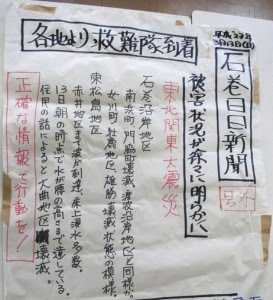 平成23年
3月13日(日)
石巻日日新聞
号外
各地より救難隊到着
被害状況が徐々に明らかに
東北関東大震災
石巻沿岸地区
南浜町、門脇町壊滅、渡波沿岸地区も同様か。
女川町、牡鹿地区、雄勝壊滅状態の模様。
東松島地区
赤井地区まで波が到達、床上浸水多数。
13日朝の時点で水が腰の高さまで達している。
住民の話によると大曲地区壊滅。
正確な情報で行動を!